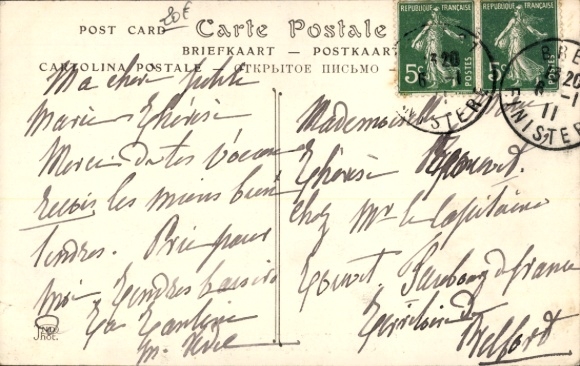 20€
POST CARD
Carte Postale
BRIEFKAART — POSTKAART
CARTOLINA POSTALE — ОТКРЫТОЕ ПИСЬМО —
REPUBLIQUE FRANÇAISE
5c POSTES
REPUBLIQUE FRANÇAISE
5c POSTES
BRE
20
6 -1
11
FINISTERE
Ma chère petite
Marie Thérèse
Merci de tes vœux
reçois les miens bien
tendres. Prie pour
moi Tendres baisers
Ta
ND
Phot.
Mademoiselle Marie
Thérèse
chez Mr le Capitaine
Faubourg de france
Territoire de
Belfort